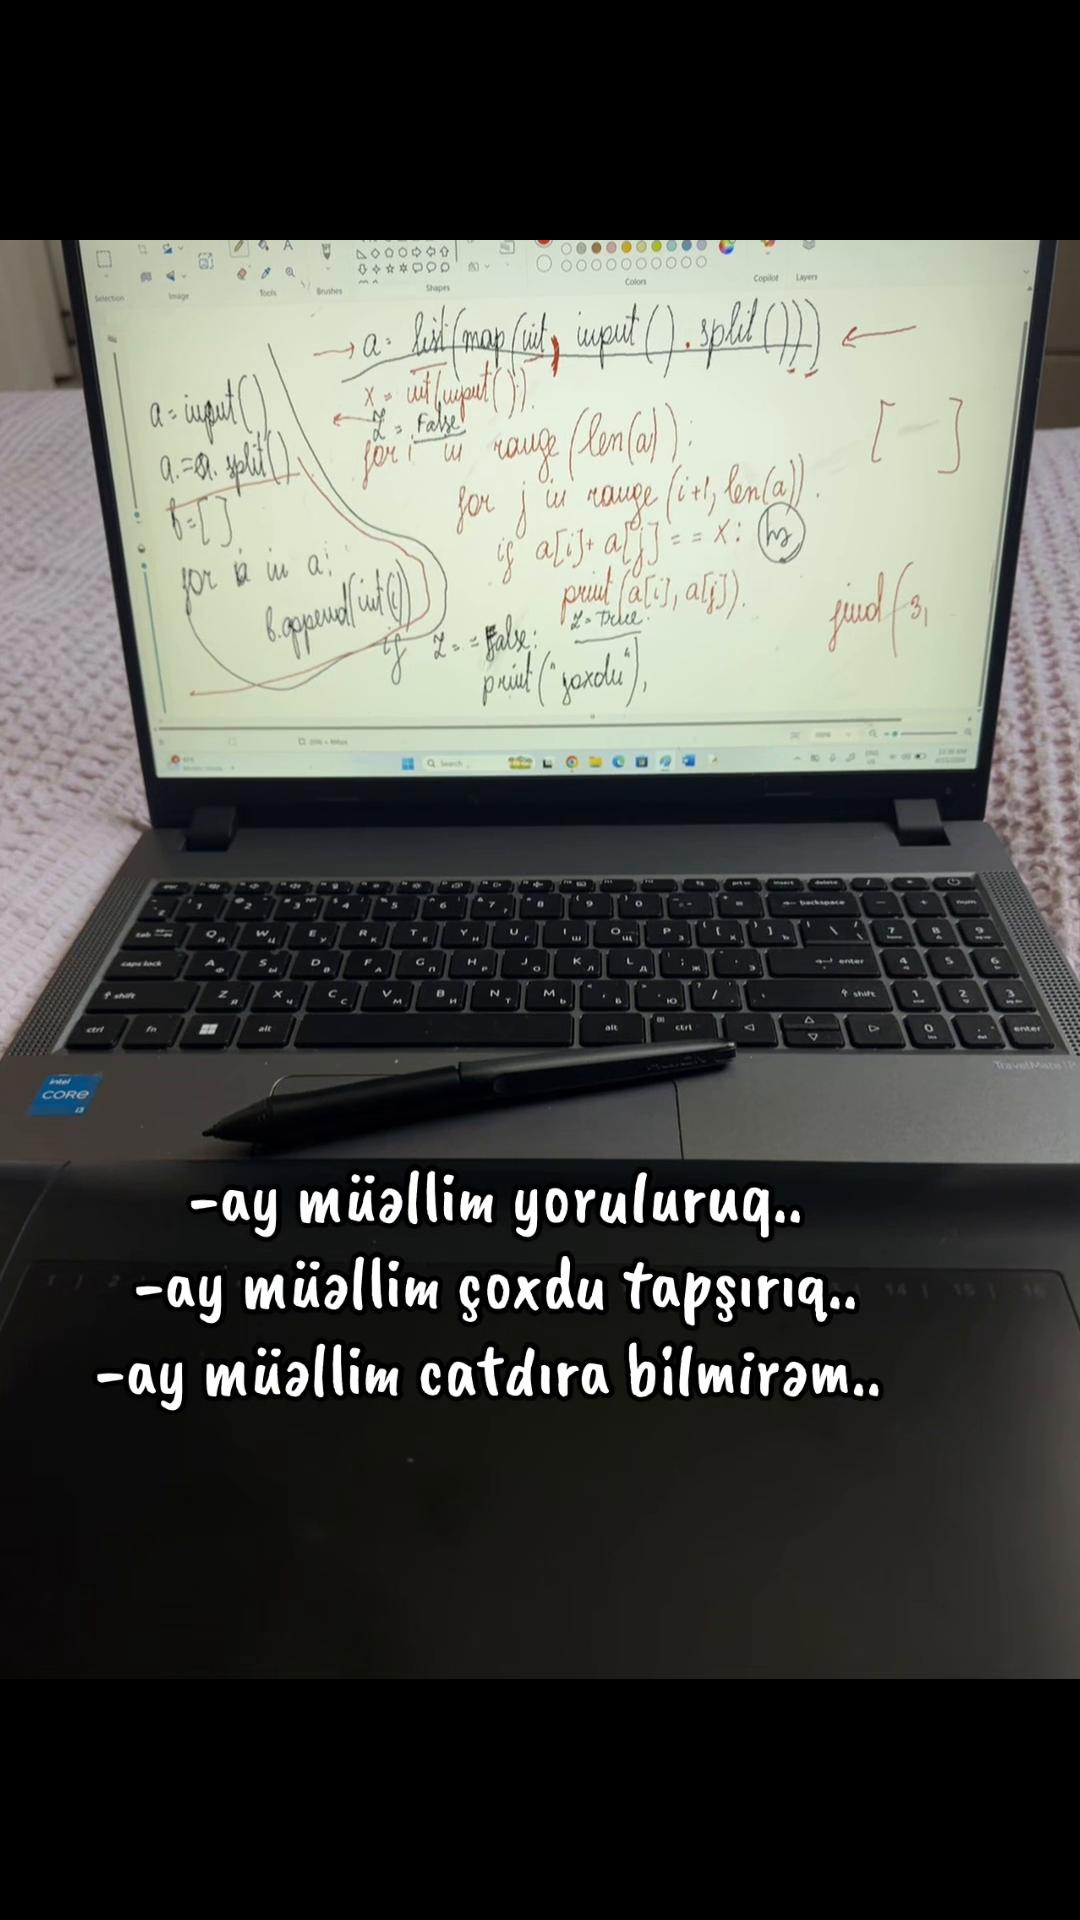 Selection
Image
Tools
Brushes
Shapes
Colors
Copilot
Layers
a = list(map(int, input().split()))
x = int(input()).
z = False
for i in range(len(a)):
for j in range(i+1, len(a)).
if a[i]+ a[j] == x:
print(a[i], a[j]).
z = True.
if z == False:
print("yoxdu"),
a = input()
a = a. split()
b = [ ]
for in a:
b.append(int(i))
[ ]
(3,
Search
intel
CORE
i3
TravelMate P
-ay müəllim yoruluruq..
-ay müəllim çoxdu tapşırıq..
-ay müəllim catdıra bilmirəm..